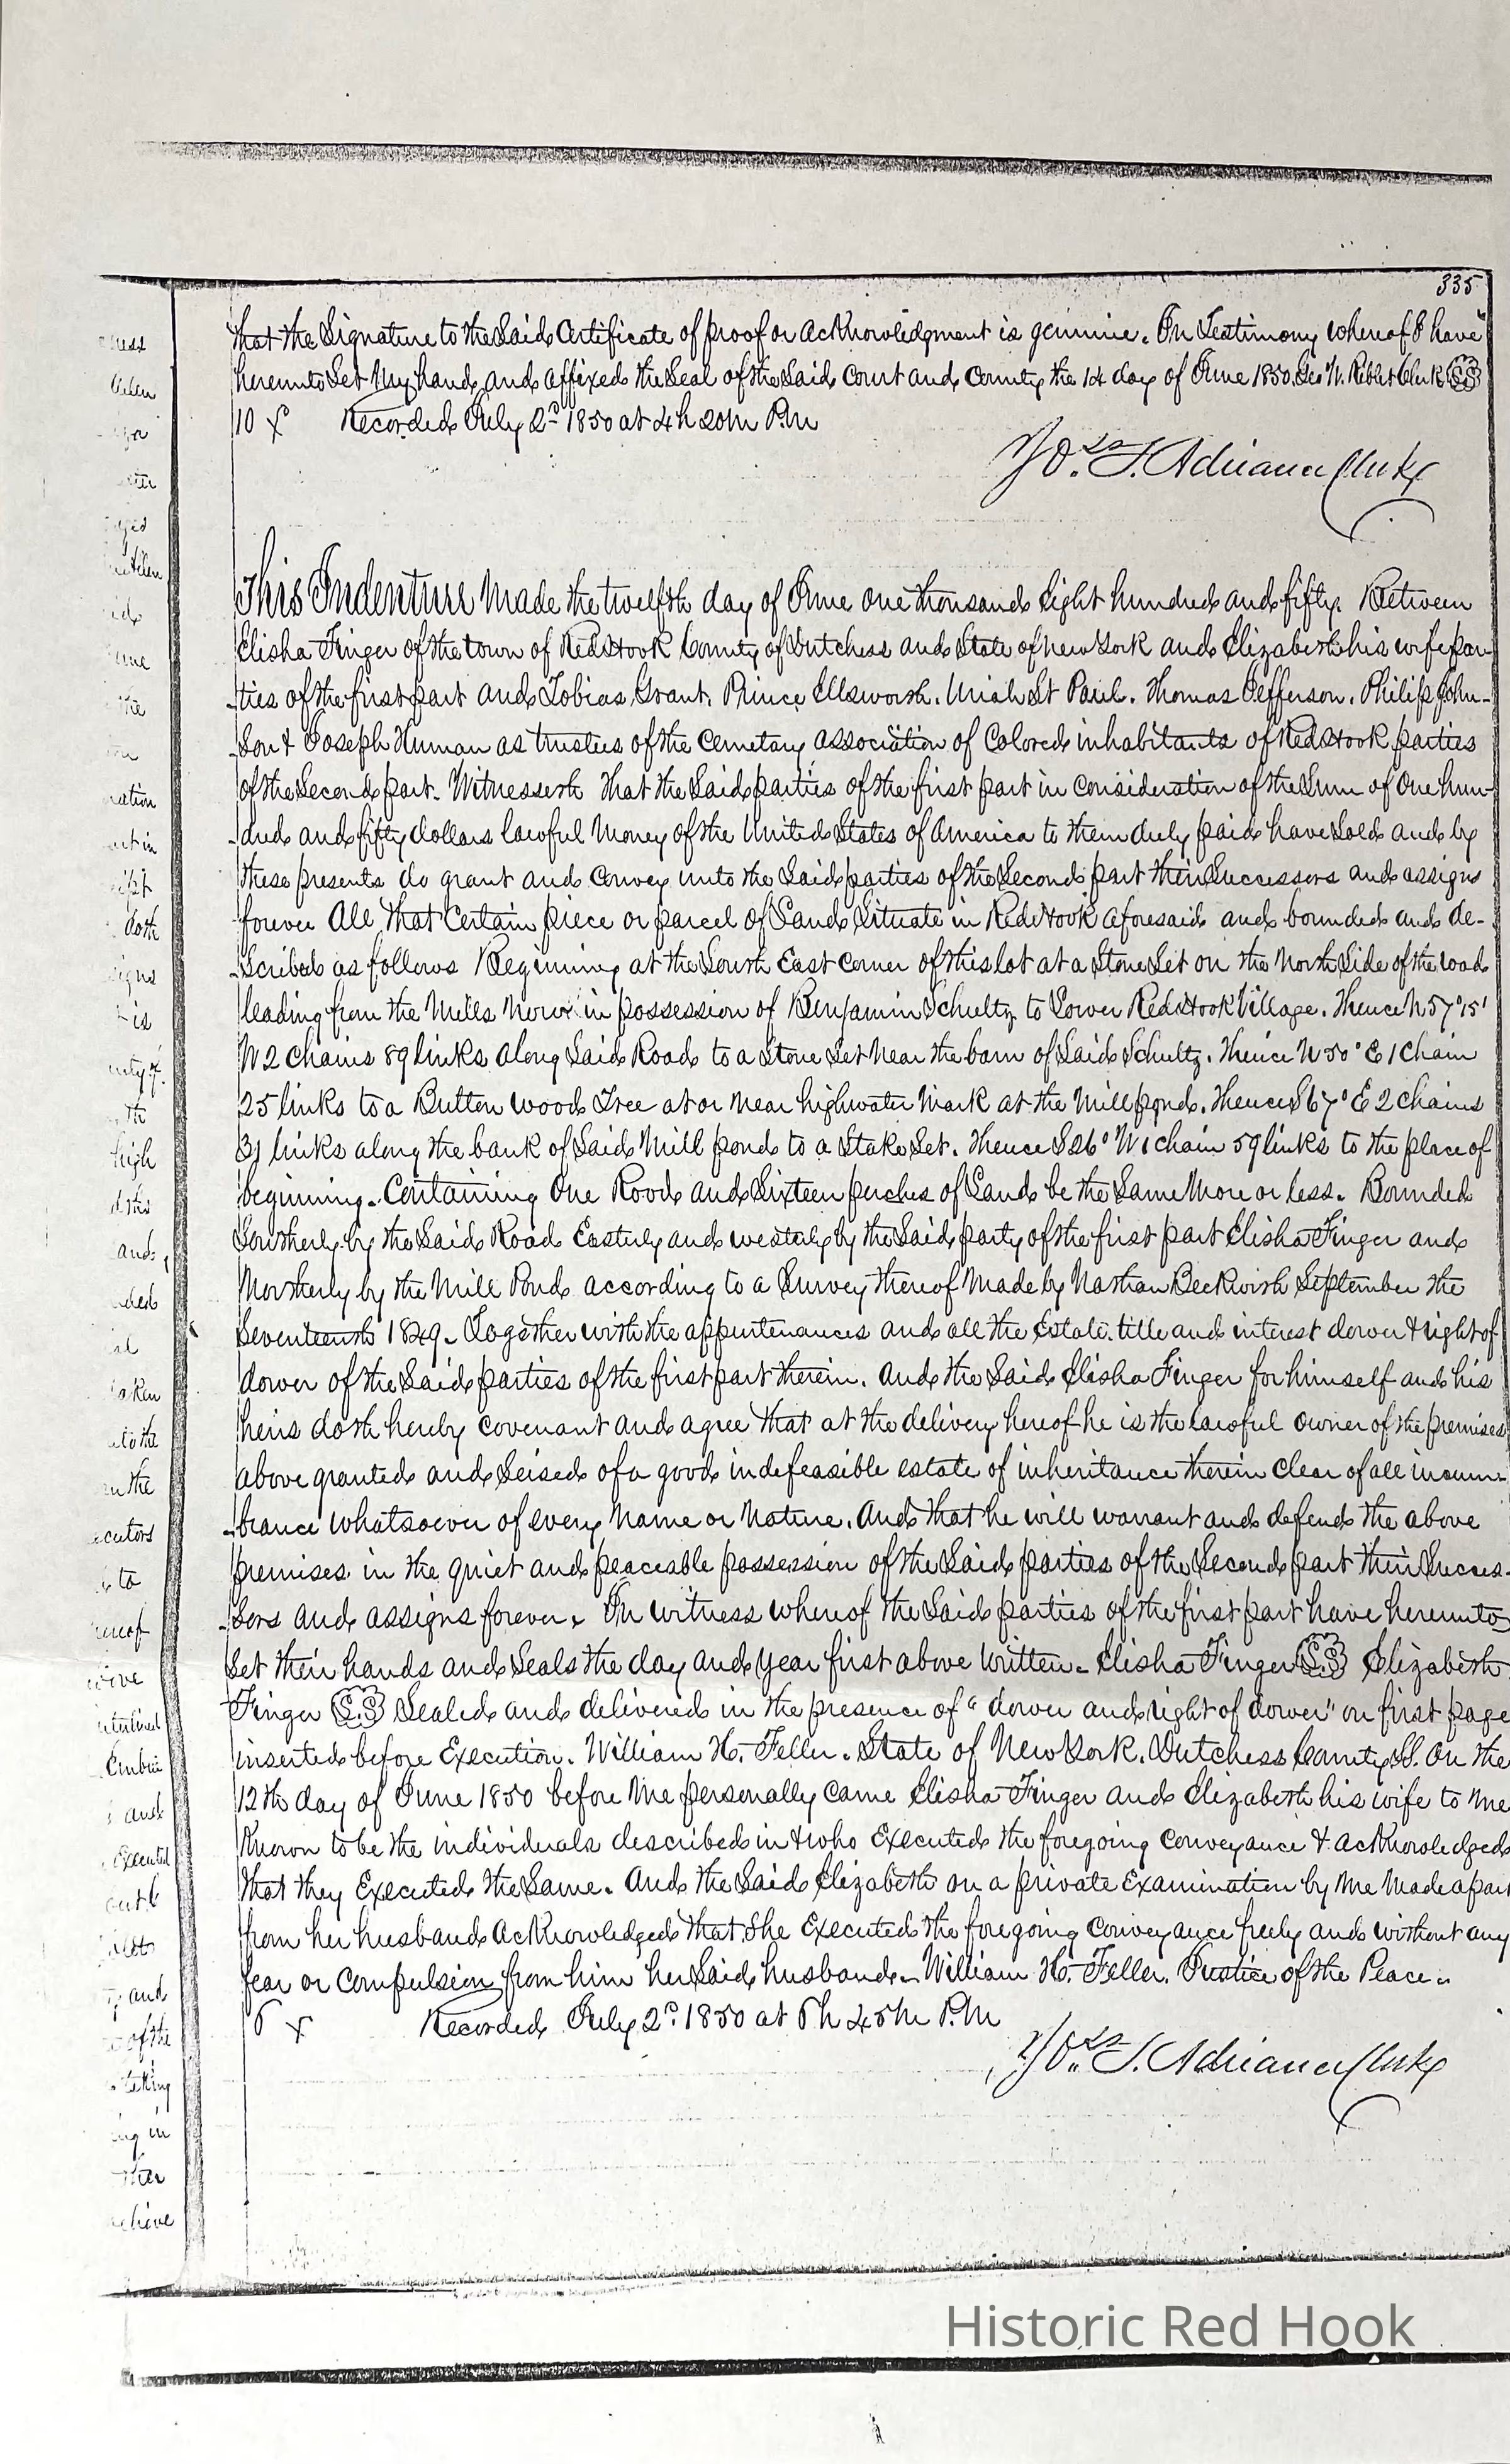 335
that the Signature to the Said Certificate of proof or Acknowledgment is genuine. In Testimony whereof I have
hereunto Set My hand and affixed the Seal of the Said Court and County the 1st day of June 1850. Geo W. Riblet Clerk L.S
10 x Recorded July 2d 1850 at 4h 20m P.M
T. Adriance Clerk
This Indenture Made the twelfth day of June One thousand Eight hundred and fifty. Between
Elisha Finger of the town of Red Hook County of Dutchess and State of New York and Elizabeth his wife par-
-ties of the first part and Tobias Grant. Prince Ellsworth. Uriah St Paul. Thomas Jefferson. Philip John-
-son & Joseph Human as trustees of the Cemetary Association of Colored inhabitants of Red Hook parties
of the Second part. Witnesseth That the Said parties of the first part in Consideration of the Sum of One hun-
-dred and fifty dollars lawful Money of the United States of America to them duly paid have Sold and by
these presents do grant and Convey unto the Said parties of the Second part their Successors and assigns
forever All That Certain piece or parcel of Land Situate in Red Hook aforesaid and bounded and de-
-scribed as follows Beginning at the South East Corner of this lot at a Stone Set on the North Side of the road
leading from the Mills Now in possession of Benjamin Schultz to Lower Red Hook Village. Thence N 57° 15'
W 2 Chains 89 links along Said Road to a Stone Set Near the barn of Said Schultz. Thence N 50° E 1 Chain
25 links to a Button wood Tree at or Near highwater Mark at the Mill pond. Thence S 67° E 2 Chains
31 links along the bank of Said Mill pond to a Stake Set. Thence S 26° W 1 chain 59 links to the place of
beginning. Containing One Rood and Sixteen perches of Land be the Same More or less. Bounded
Southerly by the Said Road Easterly and westerly by the Said party of the first part Elisha Finger and
Northerly by the Mill Pond according to a Survey thereof Made by Nathan Beckwith September the
Seventeenth 1849. Together with the appurtenances and all the Estate. title and interest dower & right of
dower of the Said parties of the first part therein. And the Said Elisha Finger for himself and his
heirs doth hereby Covenant and agree That at the delivery hereof he is the lawful Owner of the premises
above granted and Seised of a good indefeasible estate of inheritance therein Clear of all incum-
-brance whatsoever of every Name or Nature. And that he will warrant and defend the above
premises in the quiet and peaceable possession of the Said parties of the Second part their Succes-
-sors and assigns forever. In witness whereof the Said parties of the first part have hereunto
Set their hands and Seals the day and Year first above Written. Elisha Finger L.S Elizabeth
Finger L.S Sealed and delivered in the presence of "dower and right of dower" on first page
inserted before Execution. William H. Feller. State of New York. Dutchess County SS. On the
12th day of June 1850 before Me personally Came Elisha Finger and Elizabeth his wife to Me
Known to be the individuals described in & who Executed the foregoing Conveyance & acknowledged
That they Executed the Same. And the Said Elizabeth on a private Examination by Me Made apart
from her husband Acknowledged That She Executed the foregoing Conveyance freely and without any
fear or Compulsion from him her Said husband. William H. Feller. Justice of the Peace.
6 x Recorded July 2d 1850 at 5h 45m P.M
T. Adriance Clerk
Historic Red Hook